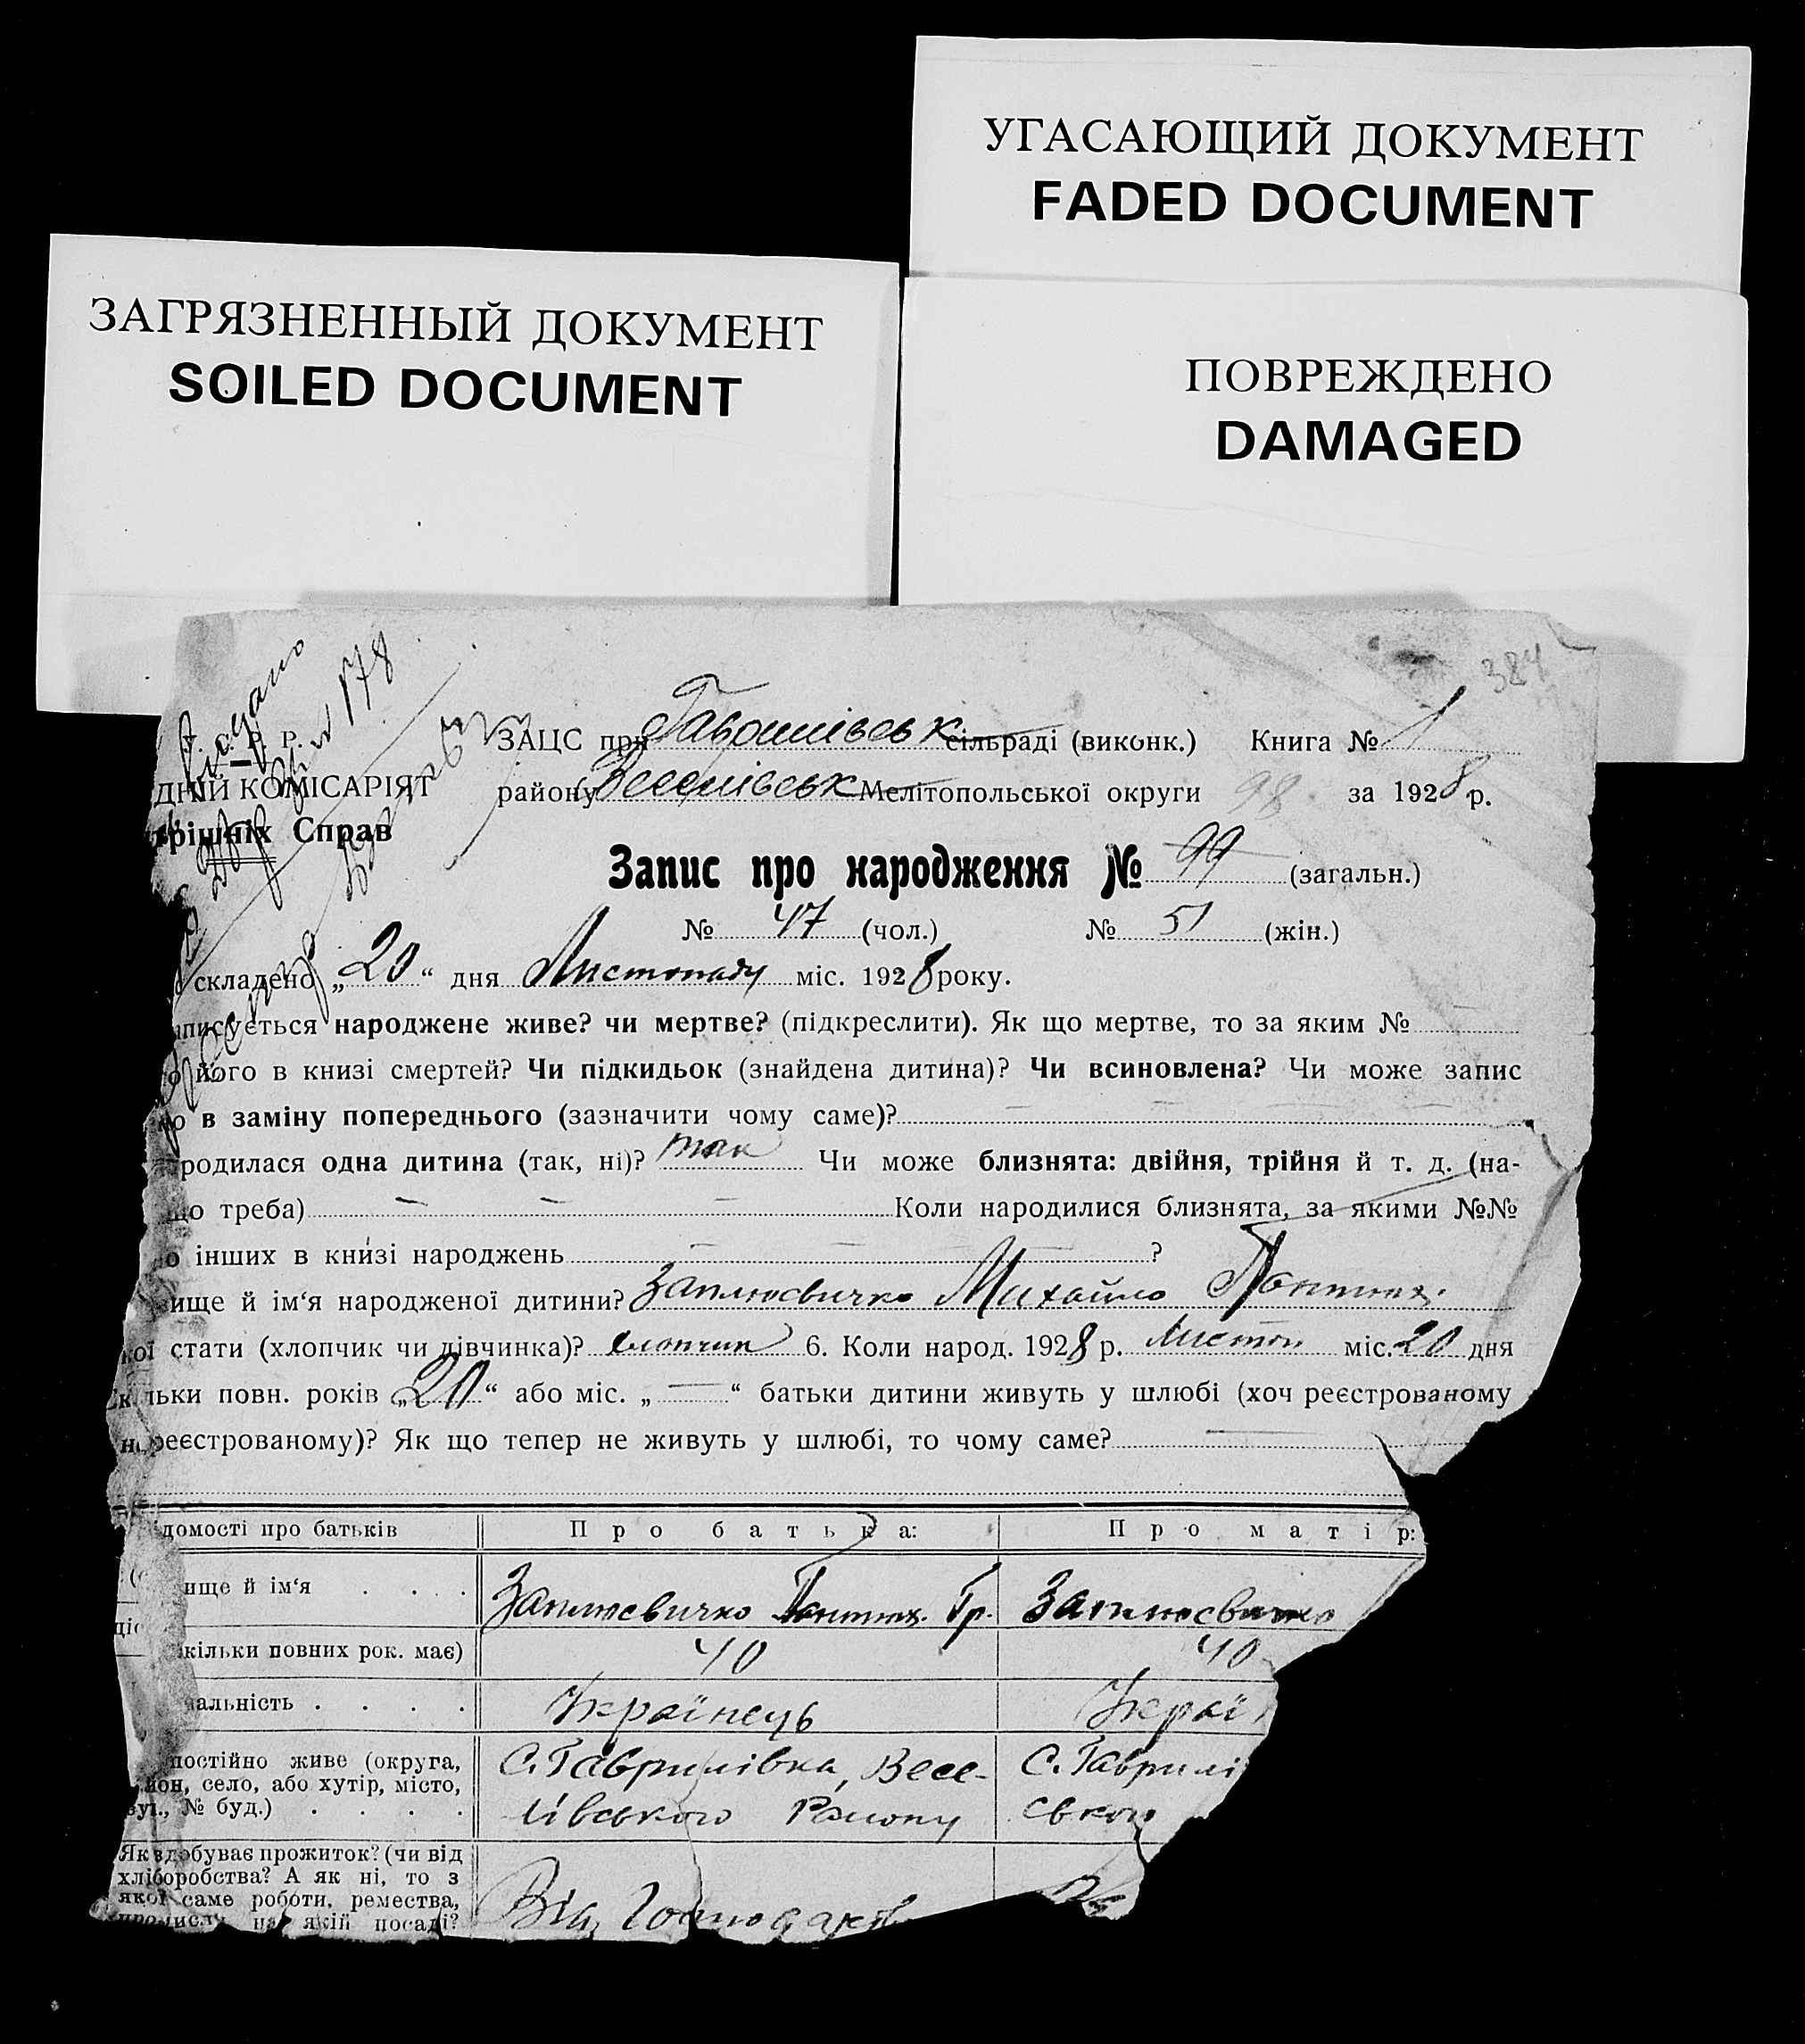 УГАСАЮЩИЙ ДОКУМЕНТ
FADED DOCUMENT
ЗАГРЯЗНЕННЫЙ ДОКУМЕНТ
SOILED DOCUMENT
ПОВРЕЖДЕНО
DAMAGED
384
178
С. Р. Р.
ЗАЦС при сільраді (виконк.) Книга № 1
ДНІЙ КОМІСАРІЯТ
району Веселівськ Мелітопольської округи 98 за 1928 р.
трішніх Справ
Запис про народження № 99 (загальн.)
№ 47 (чол.) № 51 (жін.)
складено „20“ дня Листопаду міс. 1928 року.
писується народжене живе? чи мертве? (підкреслити). Як що мертве, то за яким №
його в книзі смертей? Чи підкидьок (знайдена дитина)? Чи всиновлена? Чи може запис
в заміну попереднього (зазначити чому саме)?
родилася одна дитина (так, ні)? так Чи може близнята: двійня, трійня й т. д. (на-
що треба) Коли народилися близнята, за якими №№
о інших в книзі народжень ?
ище й ім‘я народженої дитини? Заплюсвичко Михайло Пантюх.
кої стати (хлопчик чи дівчинка)? хлопчик 6. Коли народ. 1928 р. Листоп міс. 20 дня
льки повн. років „20“ або міс. „ — “ батьки дитини живуть у шлюбі (хоч реєстрованому
реєстрованому)? Як що тепер не живуть у шлюбі, то чому саме?
домості про батьків Про батька: Про матір:
ище й ім‘я . . . Заплюсвичко Пантюх. Гр. Заплюсвичко
кільки повних рок. має) 40 40
альність . . . . Українець Украї
постійно живе (округа, С. Гаврилівка, Весе- С. Гаврилі
йон, село, або хутір, місто,
вул., № буд.) . . . . лівського Району ського
Як здобуває прожиток? (чи від
хліборобства? А як ні, то з
якої саме роботи, ремества, Від Господарств
промислу, на якій посаді?